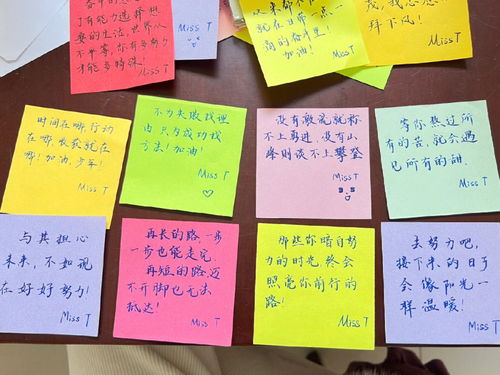 了有能力选择想
要的生活,世界从
不平等,你有多努力
才能多特殊!
Miss T
Miss T
就在日常一点一
滴的奋斗里!
加油!
Miss T
拜下风!
Miss T
时间在哪,行动
在哪,收获就在
哪!加油,少年!
Miss T
不为失败找理
由,只为成功找
方法!加油!
Miss T
没有激流就称
不上勇进,没有山
峰则谈不上攀登
Miss T
等你熬过所
有的苦,就会遇
见所有的甜.
Miss T
与其担心
未来,不如现
在好好努力!
Miss T
再长的路,一步
一步也能走完
再短的路,迈
不开脚也无法
抵达!
Miss T
那些你暗自努
力的时光,终会
照亮你前行的
路!
Miss T
去努力吧,
接下来的日子
会像阳光一
样温暖!
Miss T